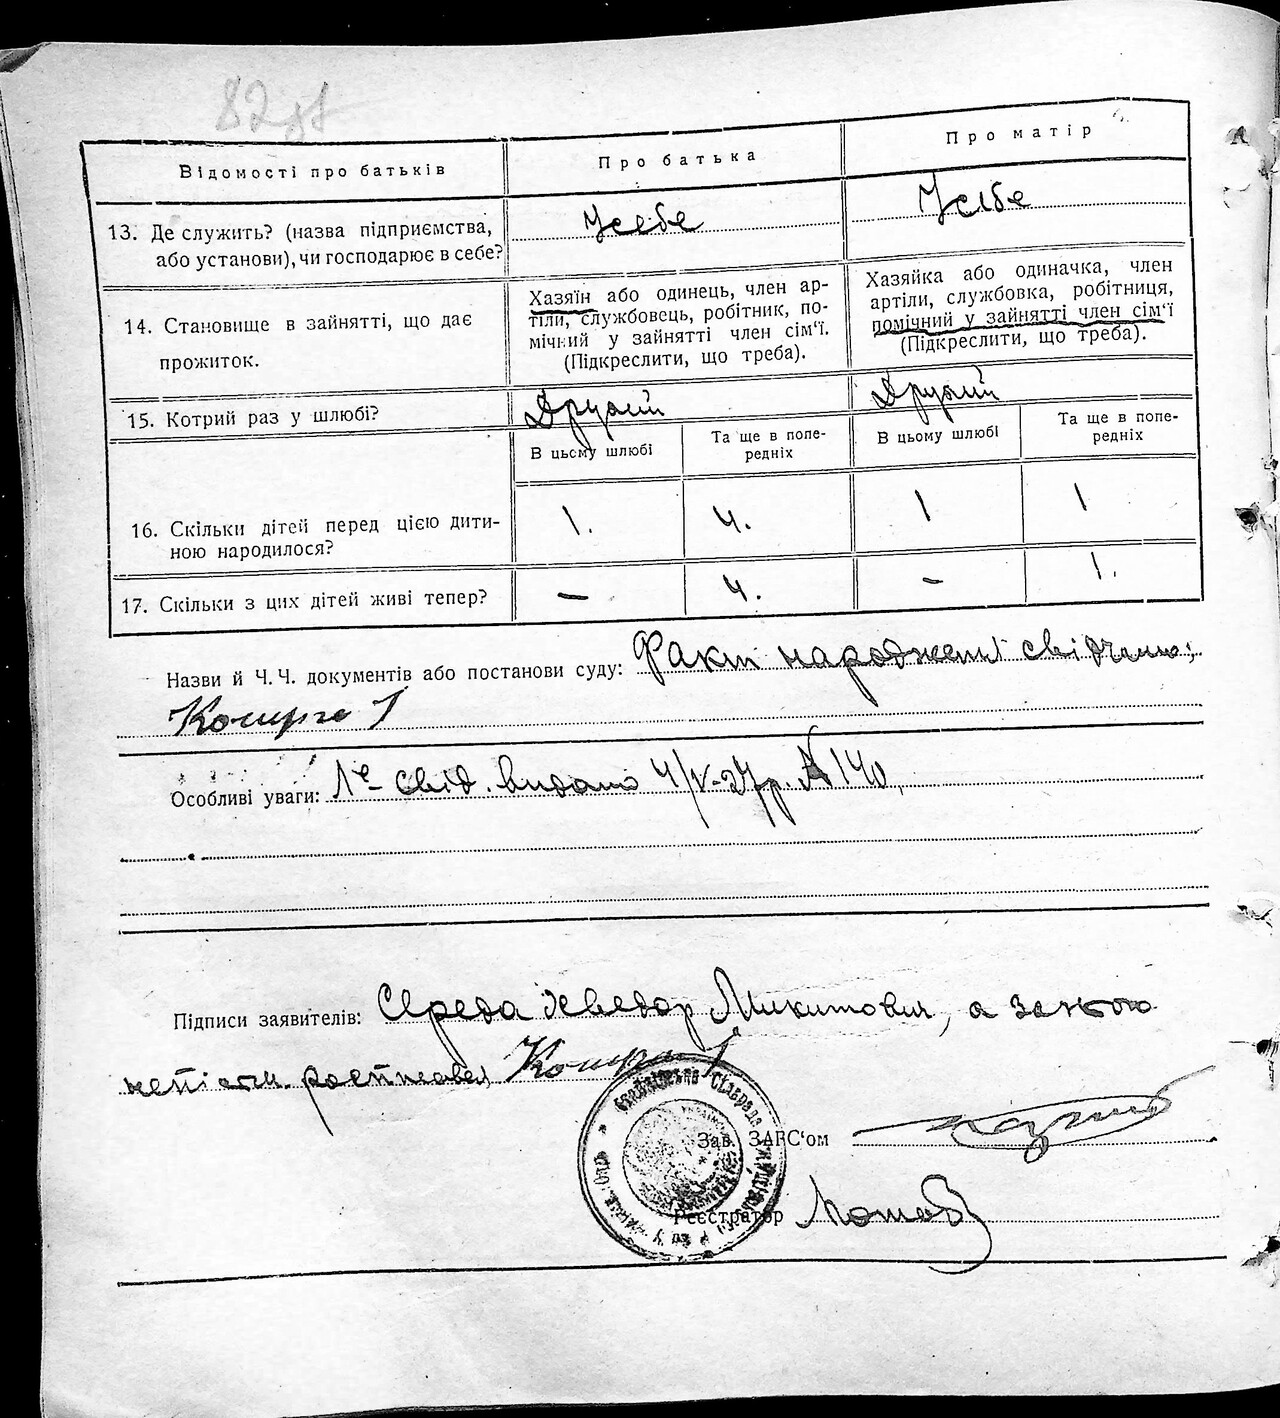 82
Відомості про батьків
Про батька
Про матір
13. Де служить? (назва підприємства,
або установи), чи господарює в себе?
У себе
У себе
14. Становище в зайнятті, що дає
прожиток.
Хазяїн або одинець, член ар-
тіли, службовець, робітник, по-
мічний у зайнятті член сім'ї.
(Підкреслити, що треба).
Хазяйка або одиначка, член
артіли, службовка, робітниця,
помічний у зайнятті член сім'ї
(Підкреслити, що треба).
15. Котрий раз у шлюбі?
Другий
Другий
В цьому шлюбі
Та ще в попе-
редніх
В цьому шлюбі
Та ще в попе-
редніх
16. Скільки дітей перед цією дити-
ною народилося?
1.
4.
1
1
17. Скільки з цих дітей живі тепер?
–
4.
–
1.
Назви й Ч.Ч. документів або постанови суду: Факт народження свідчить:
Особливі уваги: свід. видано 4/V-27р. № 140.
Підписи заявителів: Середа Хведор Микитович, а за його
неписьм. росписався
Зав. ЗАГС'ом
Реєстратор